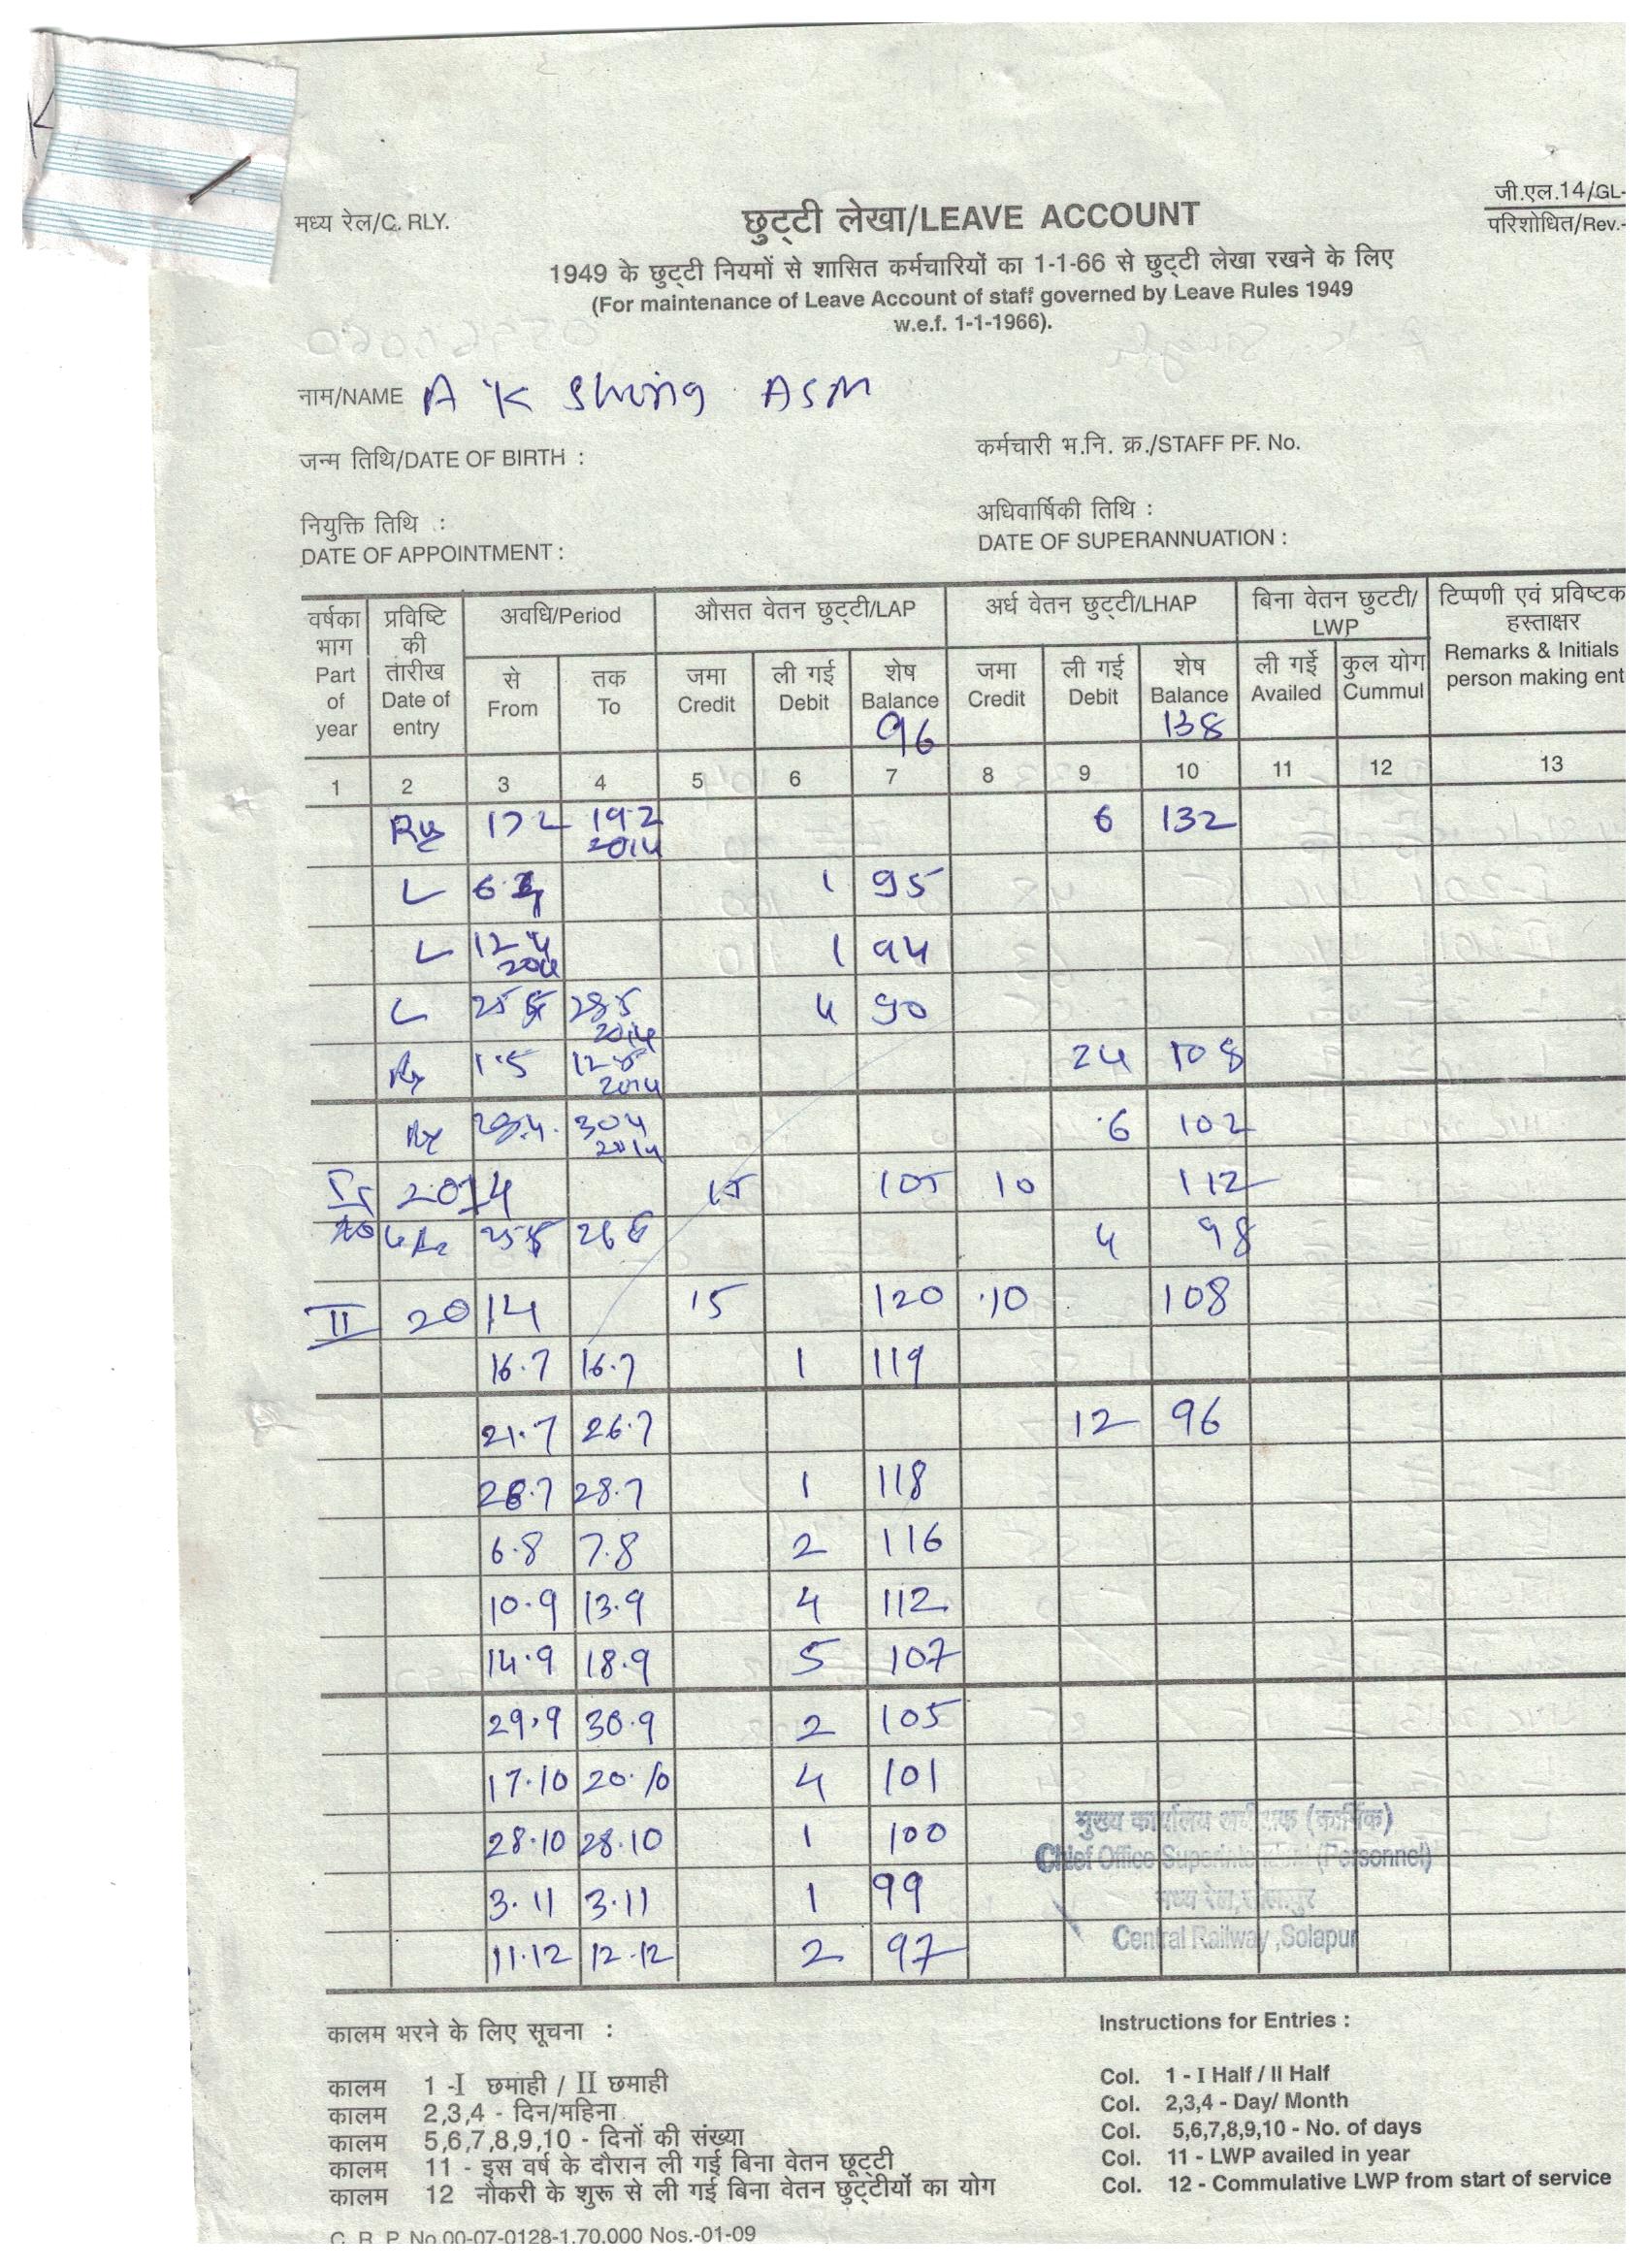 मध्य रेल/C. RLY.
छुट्टी लेखा/LEAVE ACCOUNT
जी.एल.14/GL-
परिशोधित/Rev.-
1949 के छुट्टी नियमों से शासित कर्मचारियों का 1-1-66 से छुट्टी लेखा रखने के लिए
(For maintenance of Leave Account of staff governed by Leave Rules 1949
w.e.f. 1-1-1966).
नाम/NAME A K Shing ASM
जन्म तिथि/DATE OF BIRTH :
कर्मचारी भ.नि. क्र./STAFF PF. No.
नियुक्ति तिथि :
DATE OF APPOINTMENT :
अधिवार्षिकी तिथि :
DATE OF SUPERANNUATION :
वर्षका भाग Part of year
प्रविष्टि की तारीख Date of entry
अवधि/Period
औसत वेतन छुट्टी/LAP
अर्ध वेतन छुट्टी/LHAP
बिना वेतन छुटटी/ LWP
टिप्पणी एवं प्रविष्टक
हस्ताक्षर
Remarks & Initials
person making ent
से From तक To जमा Credit ली गई Debit शेष Balance जमा Credit ली गई Debit शेष Balance ली गई Availed कुल योग Cummul
96 138
1 2 3 4 5 6 7 8 9 10 11 12 13
17 2 19.2 2014 6 132
L 1 95
L 12 4 2014 1 94
L 28 5 2014 4 90
1.5 12 5 2014 24 108
30 4 2014 6 102
2014 15 105 10 112
4 98
II 2014 15 120 10 108
16.7 16.7 1 119
21.7 26.7 12 96
28.7 28.7 1 118
6.8 7.8 2 116
10.9 13.9 4 112
14.9 18.9 5 107
29.9 30.9 2 105
17.10 20.10 4 101
28.10 28.10 1 100
3.11 3.11 1 99
11.12 12.12 2 97
मुख्य कार्यालय (कार्मिक)
Chief Office Superintendent (Personnel)
मध्य रेल, सोलापुर
Central Railway ,Solapur
कालम भरने के लिए सूचना :
कालम 1 -I छमाही / II छमाही
कालम 2,3,4 - दिन/महिना
कालम 5,6,7,8,9,10 - दिनों की संख्या
कालम 11 - इस वर्ष के दौरान ली गई बिना वेतन छूट्टी
कालम 12 नौकरी के शुरू से ली गई बिना वेतन छुट्टीयों का योग
Instructions for Entries :
Col. 1 - I Half / II Half
Col. 2,3,4 - Day/ Month
Col. 5,6,7,8,9,10 - No. of days
Col. 11 - LWP availed in year
Col. 12 - Commulative LWP from start of service
C. R. P. No.00-07-0128-1,70,000 Nos.-01-09